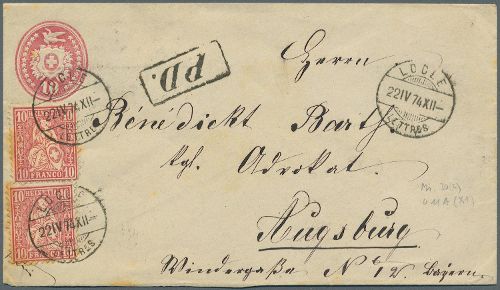 10
P.D.
Herrn
LOCLE
22 IV 74 XII-
LETTRES
LOCLE
22 IV 74 XII-
LETTRES
Bénédickt Barth
Kgl. Advokat.
10 HELVETIA 10
10 FRANCO 10
Augsburg
LOCLE
22 IV 74 XII-
LETTRES
10 HELVETIA 10
10 FRANCO 10
Windergaße No 12. Bayern.